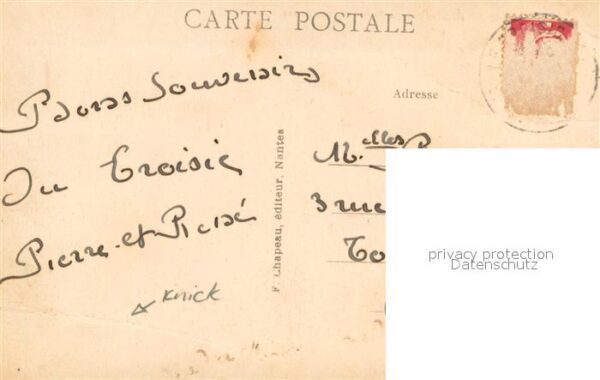 CARTE POSTALE
Adresse
Bons Souvenirs
Du Croisic
Pierre et René
F. Chapeau, éditeur, Nantes
M.elles
3 rue
To
knick
privacy protection
Datenschutz